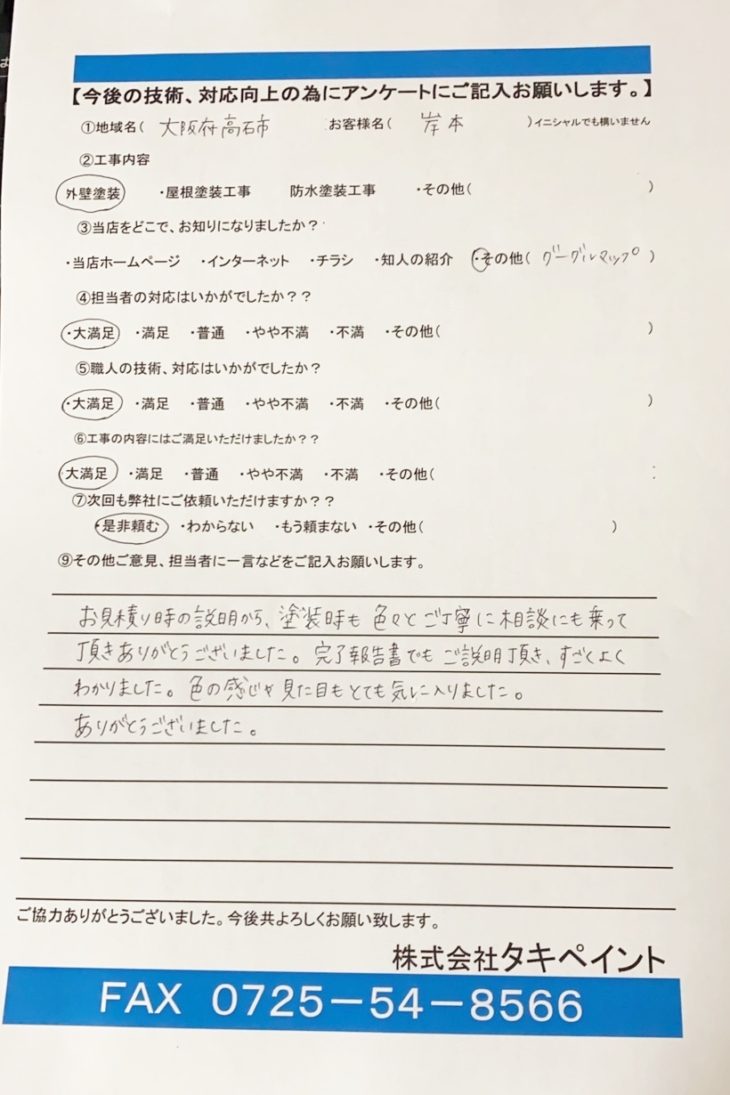 【今後の技術、対応向上の為にアンケートにご記入お願いします。】
①地域名( 大阪府高石市 お客様名( 岸本 )イニシャルでも構いません
②工事内容
外壁塗装 ・屋根塗装工事 防水塗装工事 ・その他( )
③当店をどこで、お知りになりましたか？
・当店ホームページ ・インターネット ・チラシ ・知人の紹介 ・その他( グーグルマップ )
④担当者の対応はいかがでしたか？？
・大満足 ・満足 ・普通 ・やや不満 ・不満 ・その他( )
⑤職人の技術、対応はいかがでしたか？
・大満足 ・満足 ・普通 ・やや不満 ・不満 ・その他( )
⑥工事の内容にはご満足いただけましたか？？
大満足 ・満足 ・普通 ・やや不満 ・不満 ・その他(
⑦次回も弊社にご依頼いただけますか？？
・是非頼む ・わからない ・もう頼まない ・その他( )
⑨その他ご意見、担当者に一言などをご記入お願いします。
お見積り時の説明から、塗装時も色々とご丁寧に相談にも乗って
頂きありがとうございました。完了報告書でもご説明頂き、すごくよく
わかりました。色の感じや見た目もとても気に入りました。
ありがとうございました。
ご協力ありがとうございました。今後共よろしくお願い致します。
株式会社タキペイント
FAX 0725－54－8566